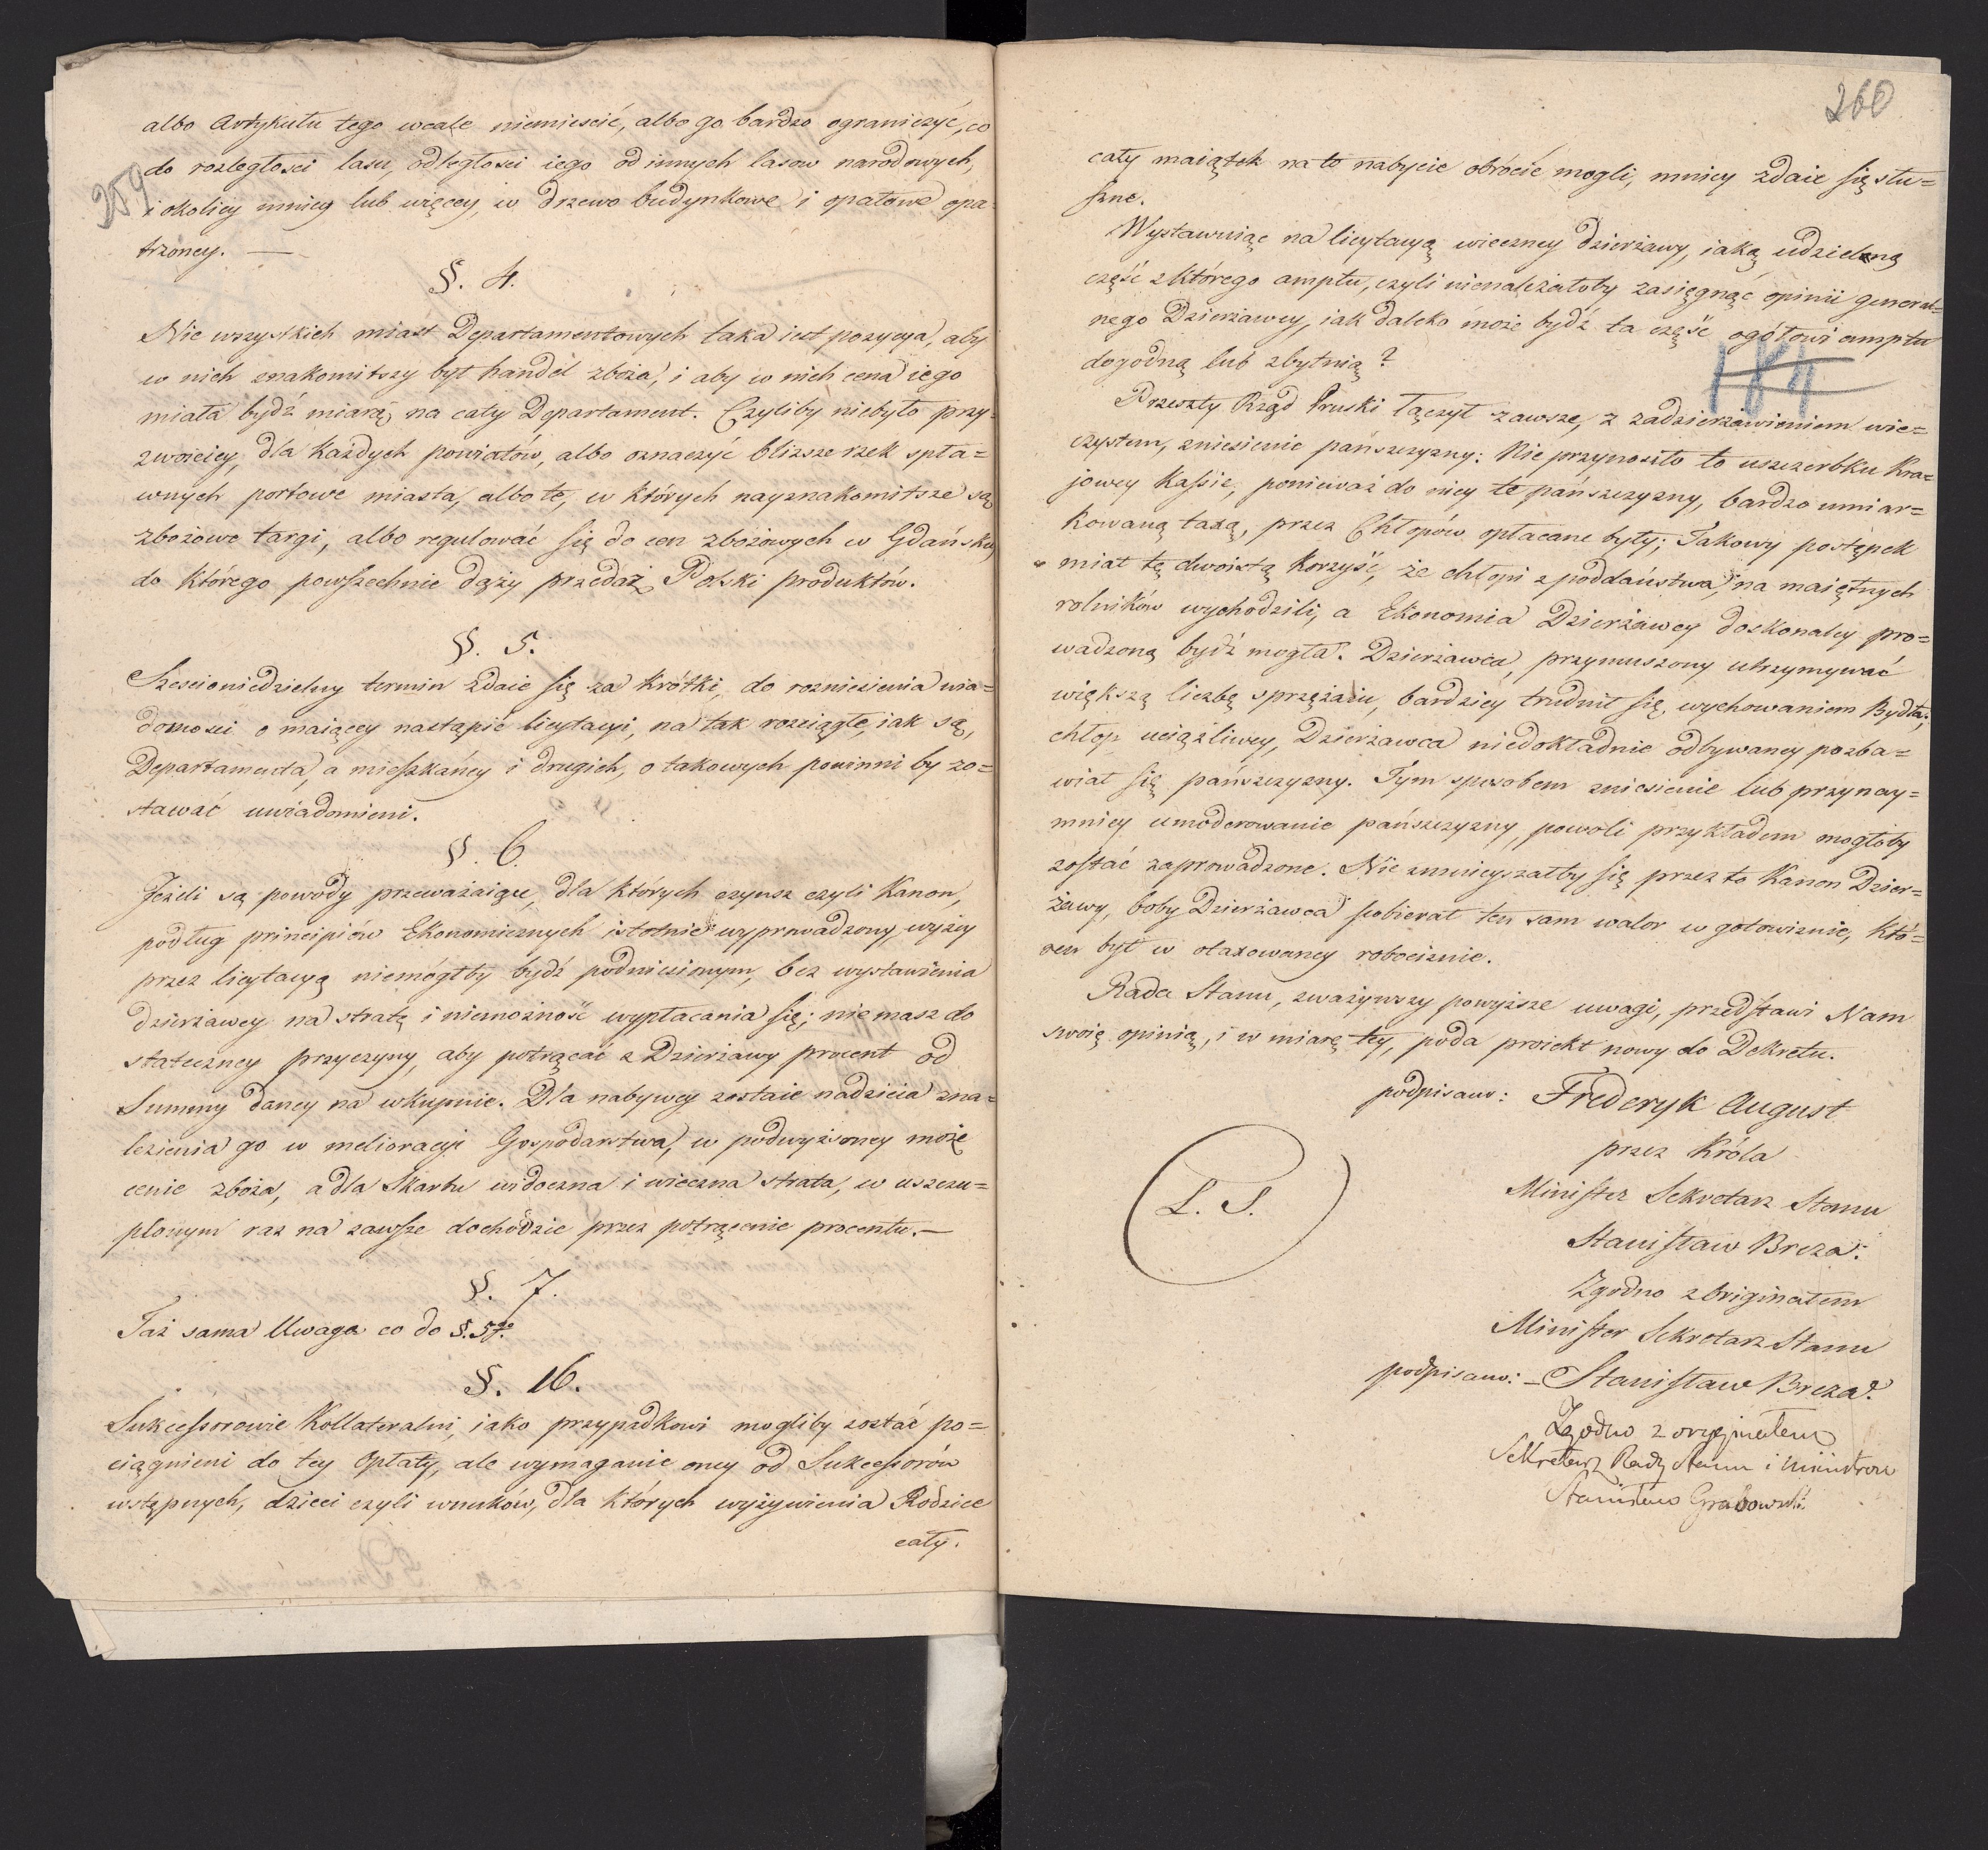 259
albo Artykułu tego wcale niemieścić, albo go bardzo ograniczyć, co
do rozległości lasu, odległości iego od innych lasow narodowych,
i okolicy mniey lub więcey, w drzewo budynkowe i opałowe opa-
trzoney. —
§. 4.
Nie wszystkich miast Departamentowych taka iest pozycya, aby
w nich znakomitszy był handel zboża, i aby w nich cena iego
miała bydź miarą, na cały Departament. Czyliby niebyło przy-
zwoiciey, dla każdych powiatów, albo oznaczyć bliższe rzek spła=
wnych portowe miasta, albo te, w których nayznakomitsze są
zbożowe targi, albo regulować się do cen zbożowych w Gdańsku,
do którego powszechnie dąży przedaż Polski produktów.
§. 5.
Sześcioniedzielny termin zdaie się za krótki, do rozniesienia wia=
domości o maiącey nastąpić licytacyi, na tak rozciągłe, iak są,
Departamenta, a mieszkańcy i drugich, o takowych powinni by zo=
stawać uwiadomieni.
§. 6.
Jeżeli są powody przeważaiące, dla których czynsz czyli Kanon,
podług principiów Ekonomicznych istotnie wyprowadzony, wyżey
przez licytacyą niemógłby bydź podniesionym, bez wystawienia
dzierżawcy na stratę i niemożność wypłacania się; nie masz do
stateczney przyczyny, aby potrącać z Dzierżawy procent od
Summy daney na wkupnie. Dla nabywcy zostaie nadzieia zna=
lezienia go w melioracyi Gospodarstwa, w podwyższoney może
cenie zboża, a dla Skarbu widoczna i wieczna strata, w uszczu=
plonym raz na zawsze dochodzie przez potrącenie procentu. —
§. 7.
Taż sama Uwaga co do §. 5go.
§. 16.
Sukcessorowie Kollateralni, iako przypadkowi mogliby zostać po=
ciągnieni do tey Opłaty, ale wymaganie oney od Sukcessorów
wstępnych, dzieci czyli wnuków, dla których wyżywienia Rodzice
cały.
260
cały maiątek na to nabycie obrócić mogli, mniey zdaie się słu=
szne.
Wystawuiąc na licytacyą wieczney dzierżawy, iaką udzielną
część z którego amptu, czyli nienależałoby zasięgnąć opinii general=
nego Dzierżawcy, iak daleko może bydź ta część ogółowi amptu
dogodną lub zbytnią?
184
Przeszły Rząd Pruski łączył zawsze, z zadzierżawieniem wie=
czystem, zniesienie pańszczyzny: Nie przynosiło to uszczerbku Kra=
jowey Kassie, ponieważ do niey te pańszczyzny, bardzo umiar=
kowaną taxą, przez Chłopów opłacane były; Takowy postępek
miał tę dwoistą korzyść, że chłopi z poddaństwa, na maiętnych
rolników wychodzili, a Ekonomia Dzierżawcy doskonaley pro=
wadzoną bydź mogła. Dzierżawca, przymuszony utrzymywać
większą liczbę sprzężaiu, bardziey trudnił się, wychowaniem Bydła;
chłop uciążliwey, Dzierżawca niedokładnie odbywaney pozba=
wiał się pańszczyzny. Tym sposobem zniesienie lub przynay=
mniey umoderowanie pańszczyzny, powoli przykładem mogłoby
zostać zaprowadzone. Nie zmnieyszałby się przez to Kanon Dzier=
żawy, boby Dzierżawca pobierał ten sam walor w gotowiznie, któ=
ren był w otaxowaney robociznie.
Rada Stanu, zważywszy powyższe uwagi, przedstawi Nam
swoię opinią, i w miarę tey, poda proiekt nowy do Dekretu.
podpisano: Frederyk August
przez Króla
Minister Sekretarz Stanu
L. S.
Stanisław Breza.
Zgodno z Originałem
Minister Sekretarz Stanu
podpisano: — Stanisław Breza.
Zgodno z oryginałem
Sekretarz Rady Stanu i Ministrow
Stanisław Grabowski